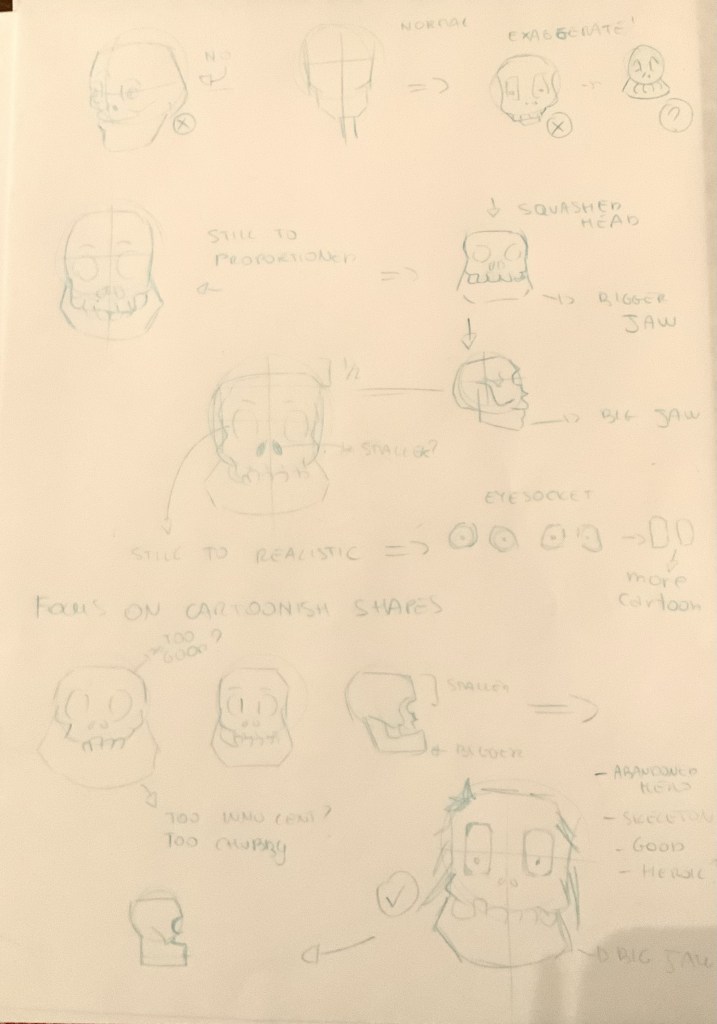 NO
NORMAL
EXAGGERATE!
?
SQUASHED
HEAD
STILL TO
PROPORTIONED
BIGGER
JAW
1/2
BIG JAW
SMALLER?
EYESOCKET
STILL TO REALISTIC
more
cartoon
FOCUS ON CARTOONISH SHAPES
TOO
GOOD?
SMALLER
BIGGER
- ABANDONED
HERO
TOO INNOCENT?
TOO CHUBBY
- SKELETON
- GOOD
- HEROIC?
BIG JAW